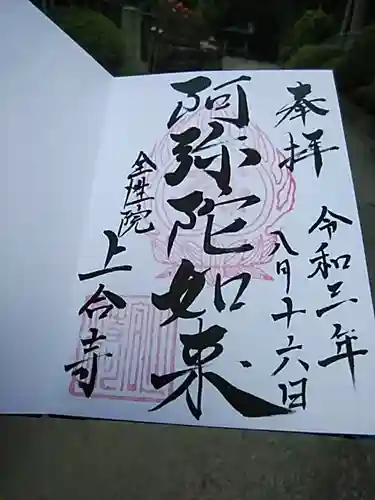 奉拝
令和三年
八月十六日
阿弥陀如来
全性院
上合寺